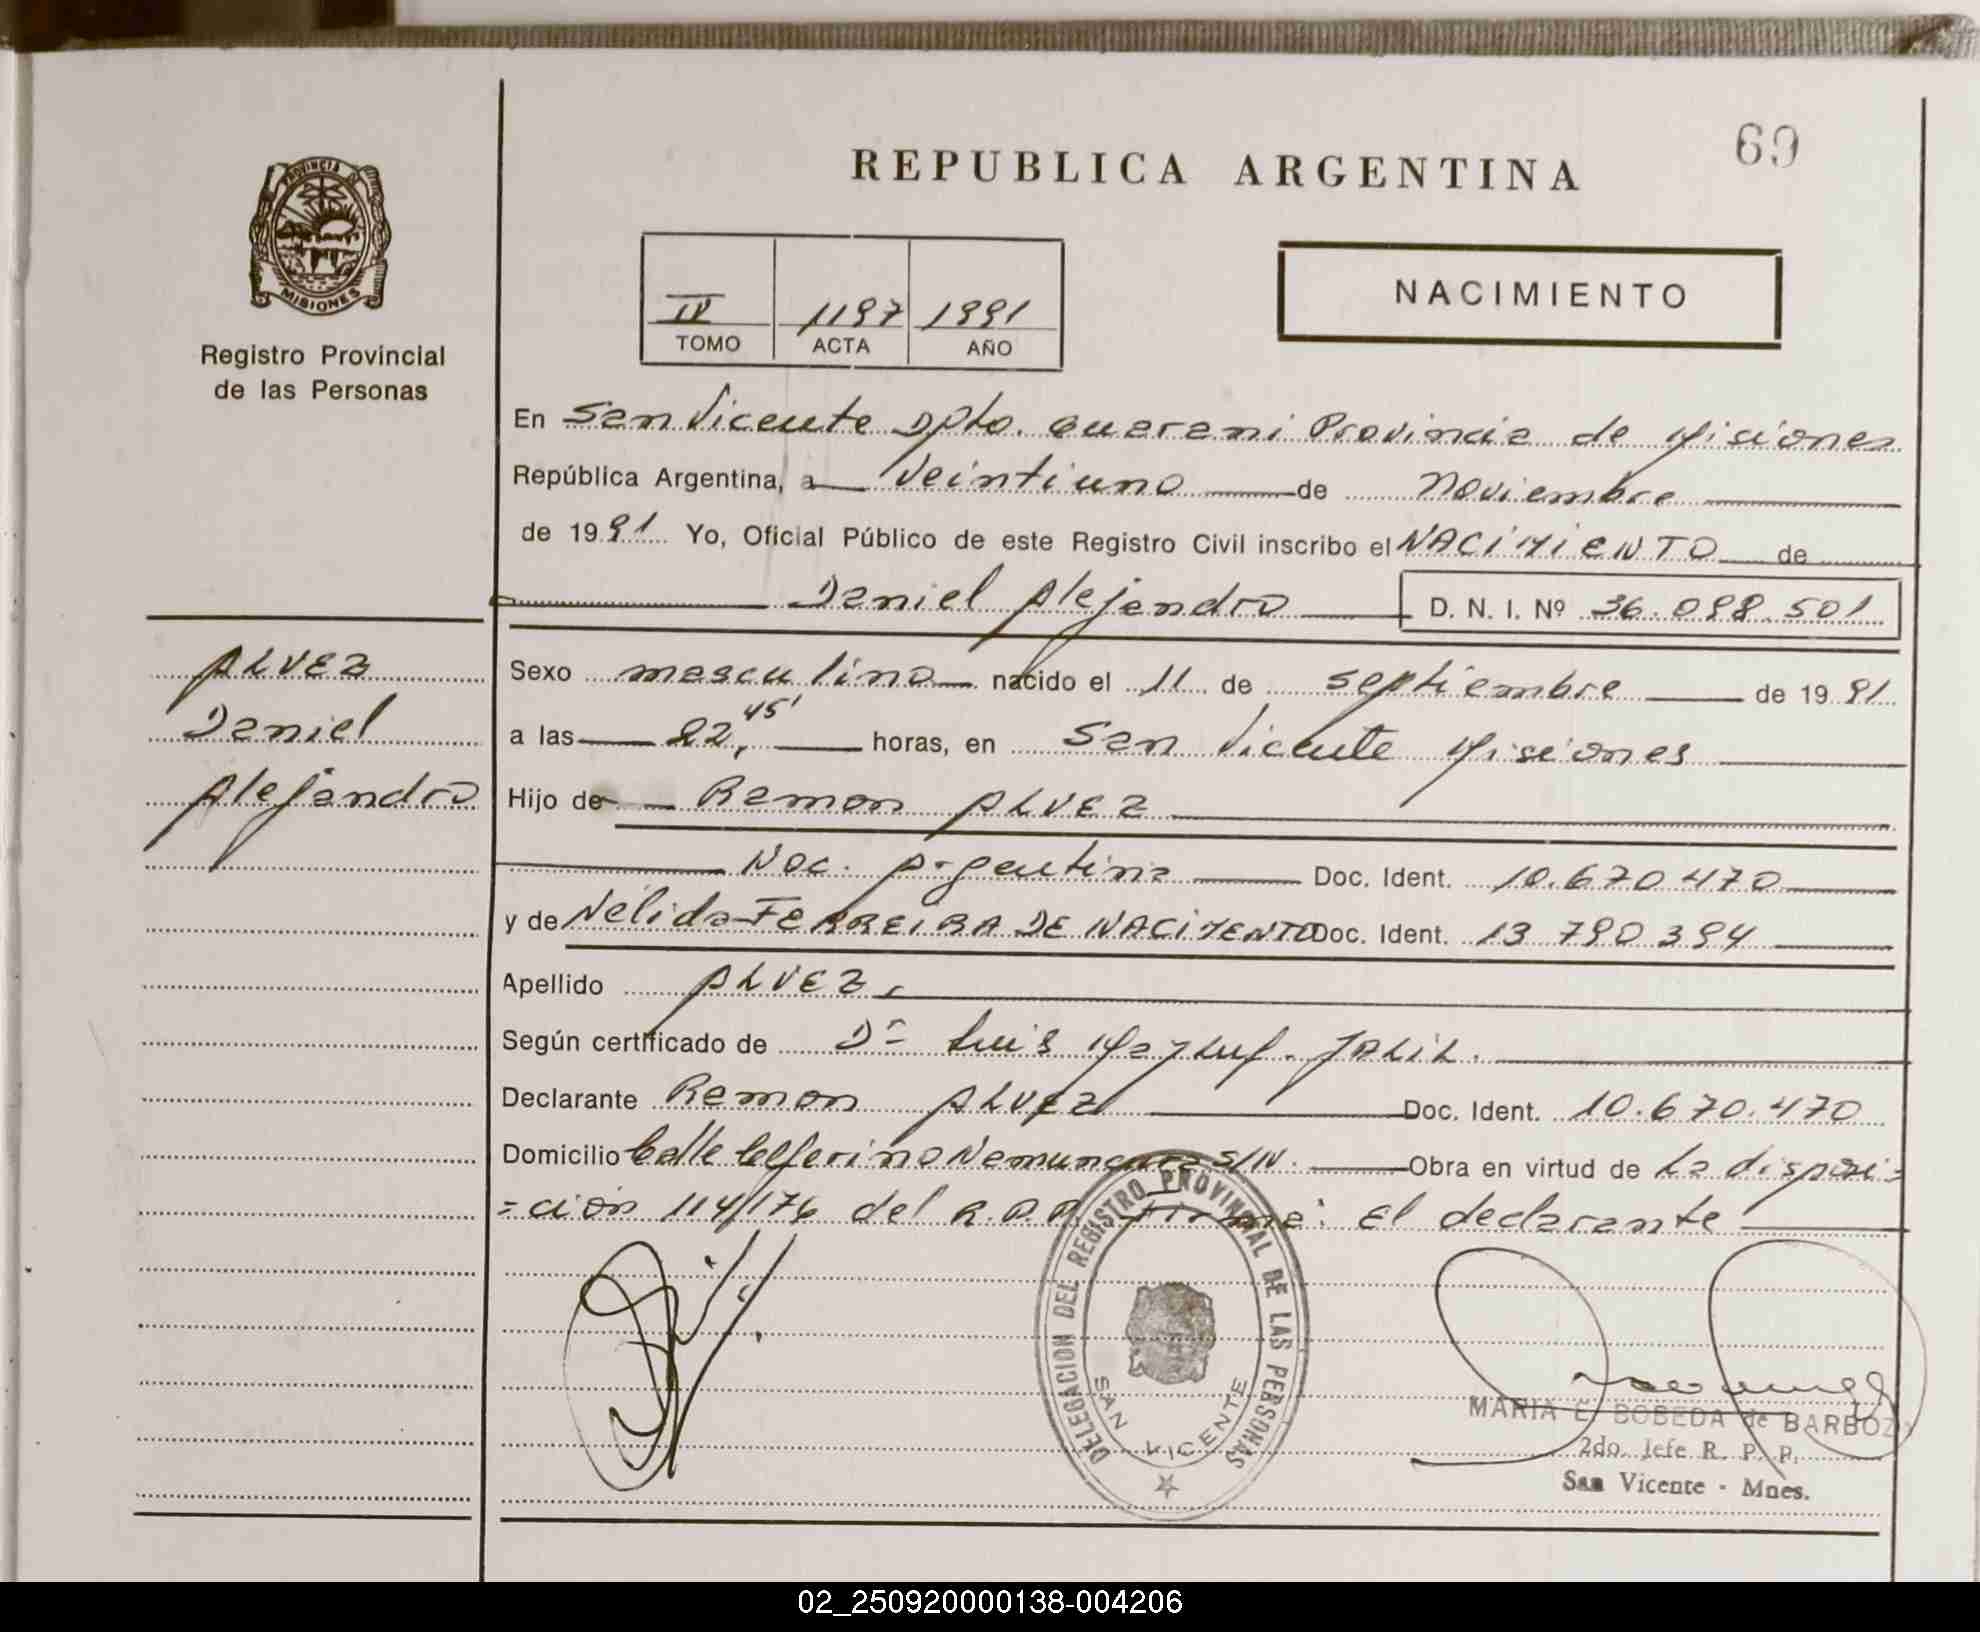 69
REPUBLICA ARGENTINA
PROVINCIA DE
MISIONES
Registro Provincial
de las Personas
NACIMIENTO
IV 1197 1991
TOMO ACTA AÑO
En San Vicente Dpto. Guarani Provincia de Misiones
República Argentina, a veintiuno de Noviembre
de 1991 Yo, Oficial Público de este Registro Civil inscribo el NACIMIENTO de
Daniel Alejandro D. N. I. Nº 36.098.501
ALVEZ
Daniel
Alejandro
Sexo masculino nacido el 11 de septiembre de 1991
a las 22,45' horas, en San Vicente Misiones
Hijo de Ramon ALVEZ
Nac. Argentina Doc. Ident. 10.670.470
y de Nélida FERREIRA DE NACIMENTO Doc. Ident. 13 790 394
Apellido ALVEZ.
Según certificado de Dr Luis JALIL.
Declarante Ramon ALVEZ Doc. Ident. 10.670.470
Domicilio Calle Ceferino Namuncura S/N. Obra en virtud de La disposi=
=ción 114/176 del R.P.P. Firma: El declarante
DELEGACION DEL REGISTRO PROVINCIAL DE LAS PERSONAS
SAN VICENTE
MARIA E. BOBEDA de BARBOZA
2do. Jefe R. P. P.
San Vicente - Mnes.
02_250920000138-004206